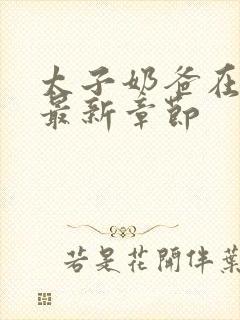 太子奶爸在
最新章節
若是花開伴葉